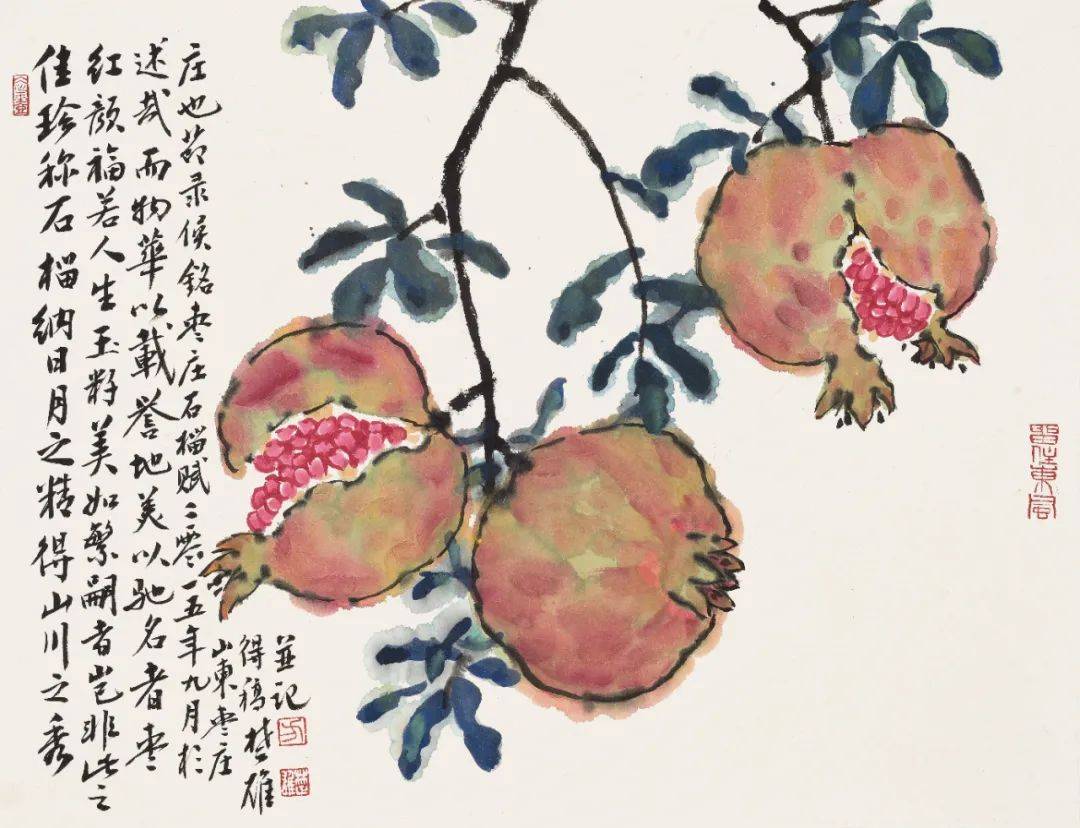 佳珍称石榴纳日月之精得山川之秀
红颜福若人生玉籽美如繁嗣者岂非此之
述哉而物華以載誉地美以驰名者枣
庄也节录侯铭枣庄石榴赋二零一五年九月於
山東枣庄
得稿楚雄
並记
方
楚雄